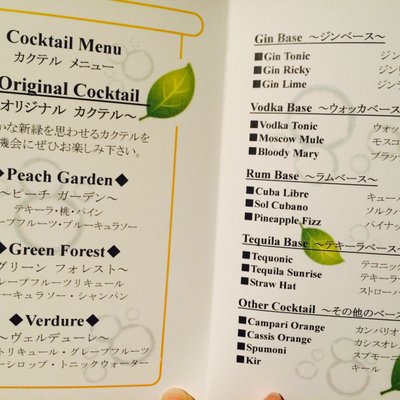 Cocktail Menu
カクテル メニュー
Original Cocktail
オリジナル カクテル～
かな新緑を思わせるカクテルを
機会にぜひお楽しみ下さい。
◆Peach Garden◆
～ピーチ ガーデン～
テキーラ・桃・パイン
ープフルーツ・ブルーキュラソー
◆Green Forest◆
グリーン フォレスト～
レープフルーツリキュール
ーキュラソー・シャンパン
◆Verdure◆
～ヴェルデューレ～
トリキュール・グレープフルーツ
ーシロップ・トニックウォーター
Gin Base ～ジンベース～
■Gin Tonic ジン
■Gin Ricky ジン
■Gin Lime ジン
Vodka Base ～ウォッカベース
■Vodka Tonic ウォッ
■Moscow Mule モスコ
■Bloody Mary ブラッ
Rum Base ～ラムベース～
■Cuba Libre キュー
■Sol Cubano ソルク
■Pineapple Fizz パイナ
Tequila Base ～テキーラベース～
■Tequonic テコニック
■Tequila Sunrise テキーラ
■Straw Hat ストロー
Other Cocktail ～その他のベース
■Campari Orange カンパリオ
■Cassis Orange カシスオレ
■Spumoni スプモーニ
■Kir キール